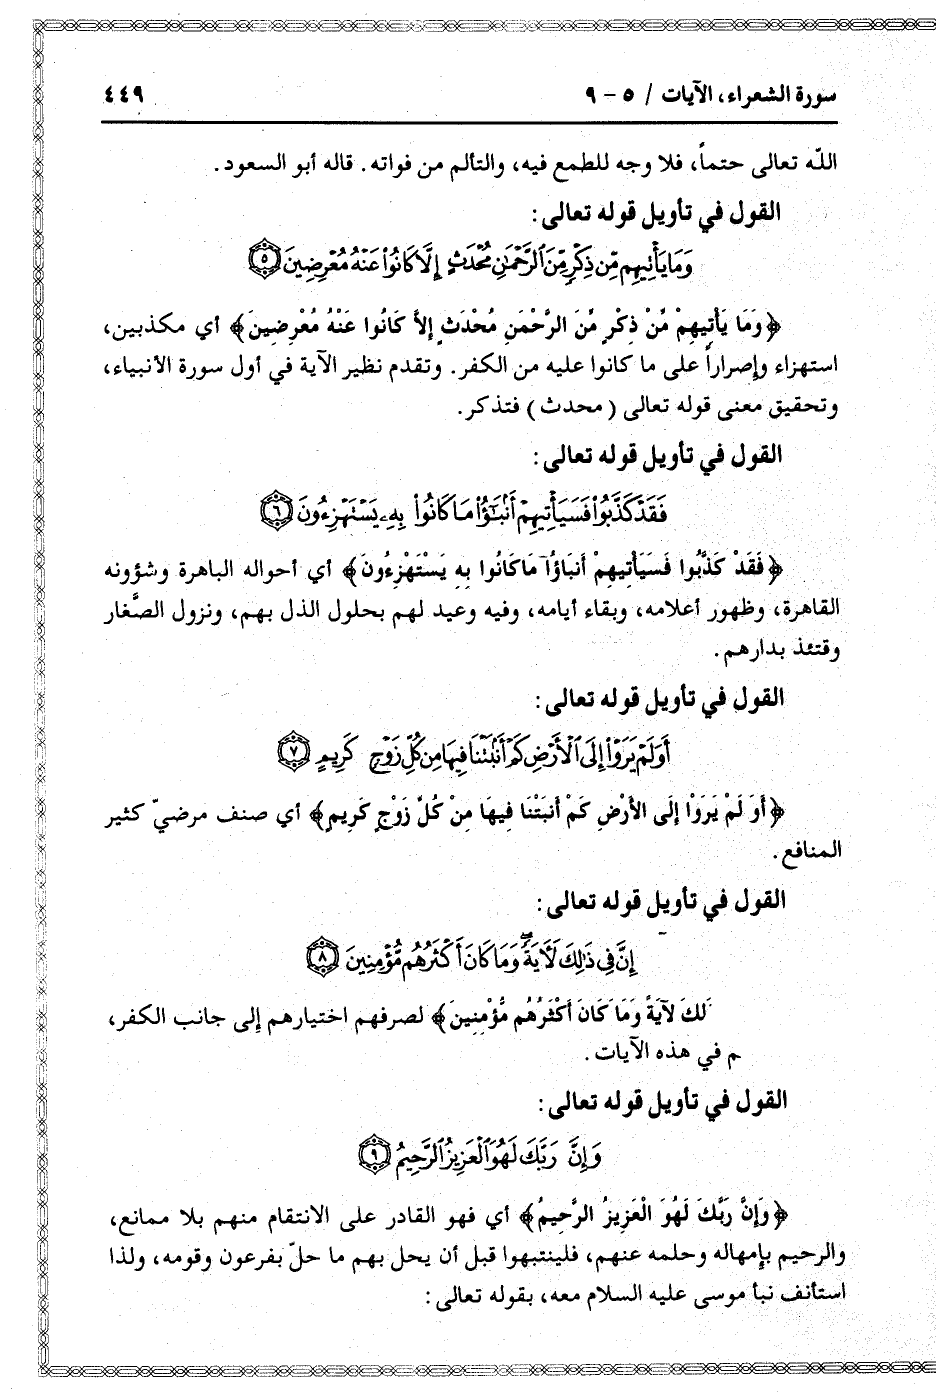 سورة الشعراء، الآيات / ٥ - ٩ ٤٤٩
اللّه تعالى حتماً، فلا وجه للطمع فيه، والتألم من فواته. قاله أبو السعود.
القول في تأويل قوله تعالى:
وَمَا يَأْتِيهِم مِّن ذِكْرٍ مِّنَ ٱلرَّحْمَٰنِ مُحْدَثٍ إِلَّا كَانُوا۟ عَنْهُ مُعْرِضِينَ ۝٥
﴿وَمَا يَأْتِيهِمْ مِّنْ ذِكْرٍ مِّنَ الرَّحْمَنِ مُحْدَثٍ إِلاَّ كَانُوا عَنْهُ مُعْرِضِينَ﴾ أي مكذبين،
استهزاء وإصراراً على ما كانوا عليه من الكفر. وتقدم نظير الآية في أول سورة الأنبياء،
وتحقيق معنى قوله تعالى (محدث) فتذكر.
القول في تأويل قوله تعالى:
فَقَدْ كَذَّبُوا۟ فَسَيَأْتِيهِمْ أَنۢبَٰٓؤُا۟ مَا كَانُوا۟ بِهِۦ يَسْتَهْزِءُونَ ۝٦
﴿فَقَدْ كَذَّبُوا فَسَيَأْتِيهِمْ أَنبَاؤُا مَا كَانُوا بِهِ يَسْتَهْزِءُونَ﴾ أي أحواله الباهرة وشؤونه
القاهرة، وظهور أعلامه، وبقاء أيامه، وفيه وعيد لهم بحلول الذل بهم، ونزول الصَّغار
وقتئذ بدارهم.
القول في تأويل قوله تعالى:
أَوَلَمْ يَرَوْا۟ إِلَى ٱلْأَرْضِ كَمْ أَنۢبَتْنَا فِيهَا مِن كُلِّ زَوْجٍ كَرِيمٍ ۝٧
﴿أَوَ لَمْ يَرَوْا إِلَى الأَرْضِ كَمْ أَنبَتْنَا فِيهَا مِنْ كُلِّ زَوْجٍ كَرِيمٍ﴾ أي صنف مرضيّ كثير
المنافع.
القول في تأويل قوله تعالى:
إِنَّ فِى ذَٰلِكَ لَءَايَةً ۖ وَمَا كَانَ أَكْثَرُهُم مُّؤْمِنِينَ ۝٨
َلِكَ لآيَةً وَمَا كَانَ أَكْثَرُهُم مُّؤْمِنِينَ﴾ لصرفهم اختيارهم إلى جانب الكفر،
م في هذه الآيات.
القول في تأويل قوله تعالى:
وَإِنَّ رَبَّكَ لَهُوَ ٱلْعَزِيزُ ٱلرَّحِيمُ ۝٩
﴿وَإِنَّ رَبَّكَ لَهُوَ الْعَزِيزُ الرَّحِيمُ﴾ أي فهو القادر على الانتقام منهم بلا ممانع،
والرحيم بإمهاله وحلمه عنهم، فلينتبهوا قبل أن يحل بهم ما حلّ بفرعون وقومه، ولذا
استأنف نبأ موسى عليه السلام معه، بقوله تعالى: